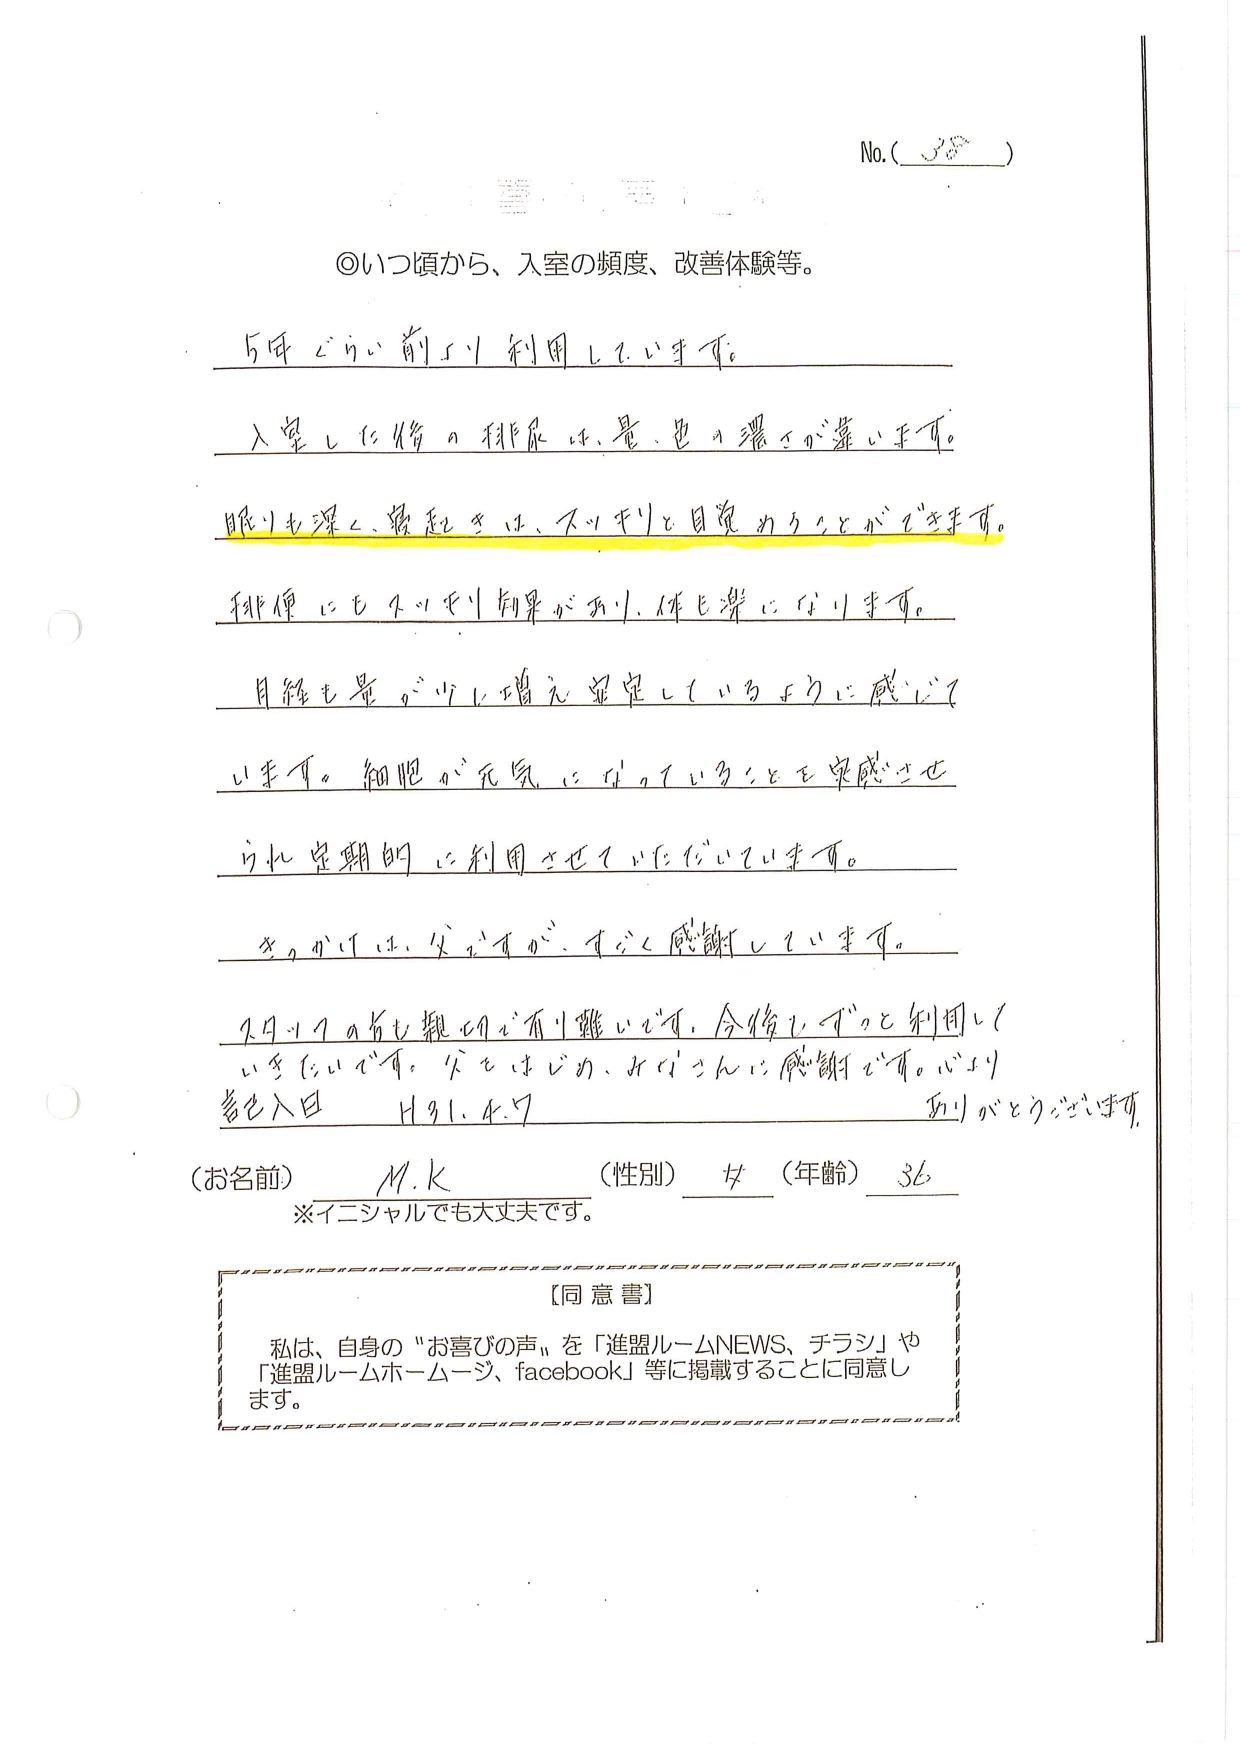 No.( 38 )
◎いつ頃から、入室の頻度、改善体験等。
5年ぐらい前より利用しています。
入室した後の排尿は、量、色の濃さが違います。
眠りも深く、寝起きは、スッキリと目覚めることができます。
排便にもスッキリ効果があり、体も楽になります。
月経も量が少し増え安定しているように感じて
います。細胞が元気になっていることを実感させ
られ定期的に利用させていただいています。
きっかけは、父ですが、すごく感謝しています。
スタッフの方も親切で有り難いです。今後もずっと利用して
いきたいです。父をはじめ、みなさんに感謝です。心より
ありがとうございます。
記入日 H31.4.7
（お名前） M.K （性別） 女 （年齢） 36
※イニシャルでも大丈夫です。
【同意書】
私は、自身の〝お喜びの声〟を「進盟ルームNEWS、チラシ」や
「進盟ルームホームージ、facebook」等に掲載することに同意し
ます。